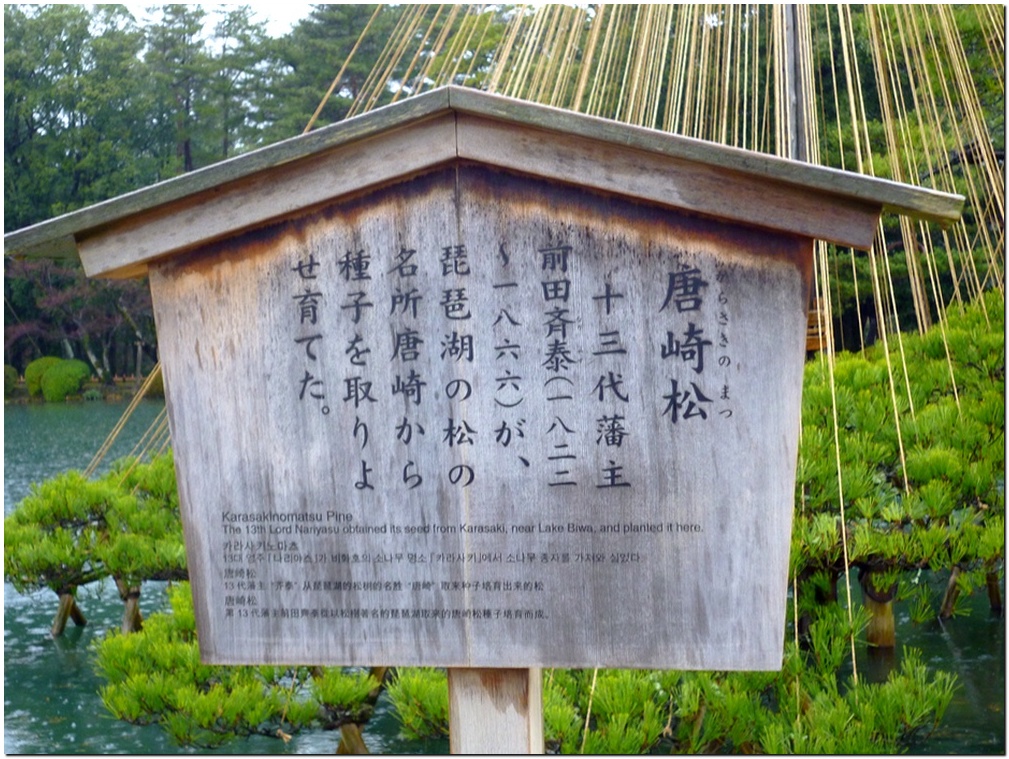 唐崎松
からさきのまつ
十三代藩主
前田斉泰(一八二二
~一八六六)が、
琵琶湖の松の
名所唐崎から
種子を取りよ
せ育てた。
Karasakinomatsu Pine
The 13th Lord Nariyasu obtained its seed from Karasaki, near Lake Biwa, and planted it here.
카라사키노마츠
13대 영주「나리야스」가 비화호의 소나무 명소「카라사키」에서 소나무 종자를 가져와 심었다
唐崎松
13 代藩主 “齐泰” 从琵琶湖的松树的名胜 “唐崎” 取来种子培育出来的松
唐崎松
第 13 代藩主前田齊泰從以松樹著名的琵琶湖取來的唐崎松種子培育而成。